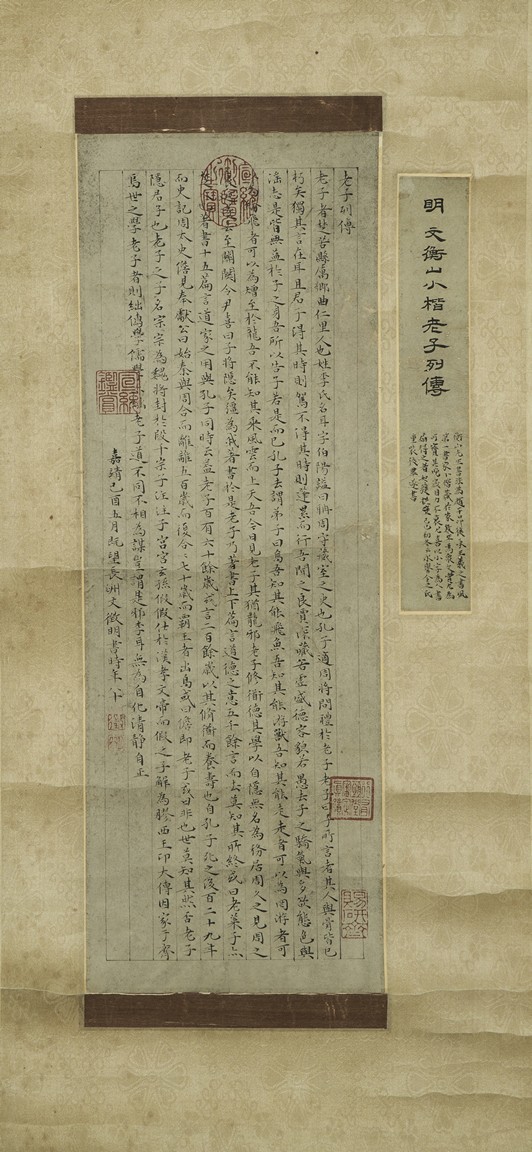 明文衡山小楷老子列傳
老子列傳
老子者楚苦縣厲鄉曲仁里人也姓李氏名耳字伯陽謚曰聃周守藏室之史也孔子適周將問禮於老子老子曰子所言者其人與骨皆已
朽矣獨其言在耳且君子得其時則駕不得其時則蓬累而行吾聞之良賈深藏若虛盛德容貌若愚去子之驕氣與多欲態色與
淫志是皆無益於子之身吾所以告子若是而已孔子去謂弟子曰鳥吾知其能飛魚吾知其能游獸吾知其能走走者可以為罔游者可
飛者可以為矰至於龍吾不能知其乘風雲而上天吾今日見老子其猶龍邪老子修道德其學以自隱無名為務居周久之見周之
至關關令尹喜曰子將隱矣彊為我著書於是老子乃著書上下篇言道德之意五千餘言而去莫知其所終或曰老萊子亦
者書十五篇言道家之用與孔子同時云蓋老子百有六十餘歲或言二百餘歲以其脩道而養壽也自孔子死之後百二十九年
而史記周太史儋見秦獻公曰始秦與周合而離離五百歲而復合合七十歲而霸王者出焉或曰儋即老子或曰非也世莫知其然否老子
隱君子也老子之子名宗宗為魏將封於段干宗子注注子宮宮玄孫假假仕於漢孝文帝而假之子解為膠西王卬太傅因家于齊
焉世之學老子者則絀儒學儒學老子道不同不相為謀豈謂是邪李耳無為自化清靜自正
嘉靖己酉五月既望長洲文徵明書時年八十